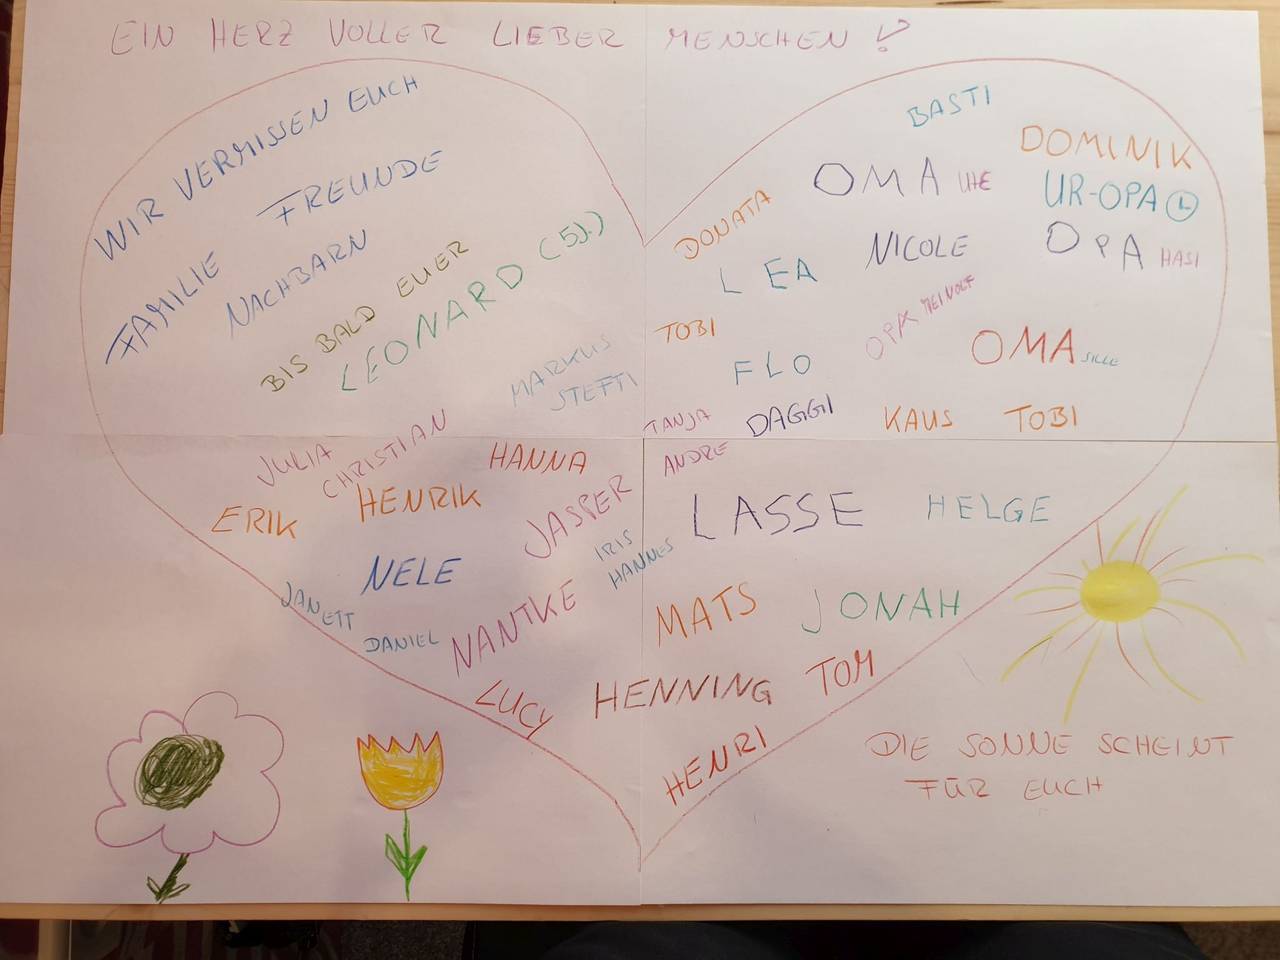 EIN HERZ VOLLER LIEBER MENSCHEN !
WIR VERMISSEN EUCH
FAMILIE FREUNDE
NACHBARN
BIS BALD EUER
LEONARD (5J.)
BASTI
DOMINIK
OMA UTE
UR-OPA L
DONATA
NICOLE
OPA HASI
LEA
OPA MEINOLF
TOBI
OMA SILLE
FLO
MARKUS
STEFFI
TANJA
DAGGI
KAUS
TOBI
ANDRE
JULIA
CHRISTIAN
HANNA
ERIK
HENRIK
JASPER
LASSE
HELGE
IRIS
HANNES
NELE
JANETT
DANIEL
NANTKE
MATS
JONAH
LUCY
HENNING
TOM
HENRI
DIE SONNE SCHEINT
FÜR EUCH